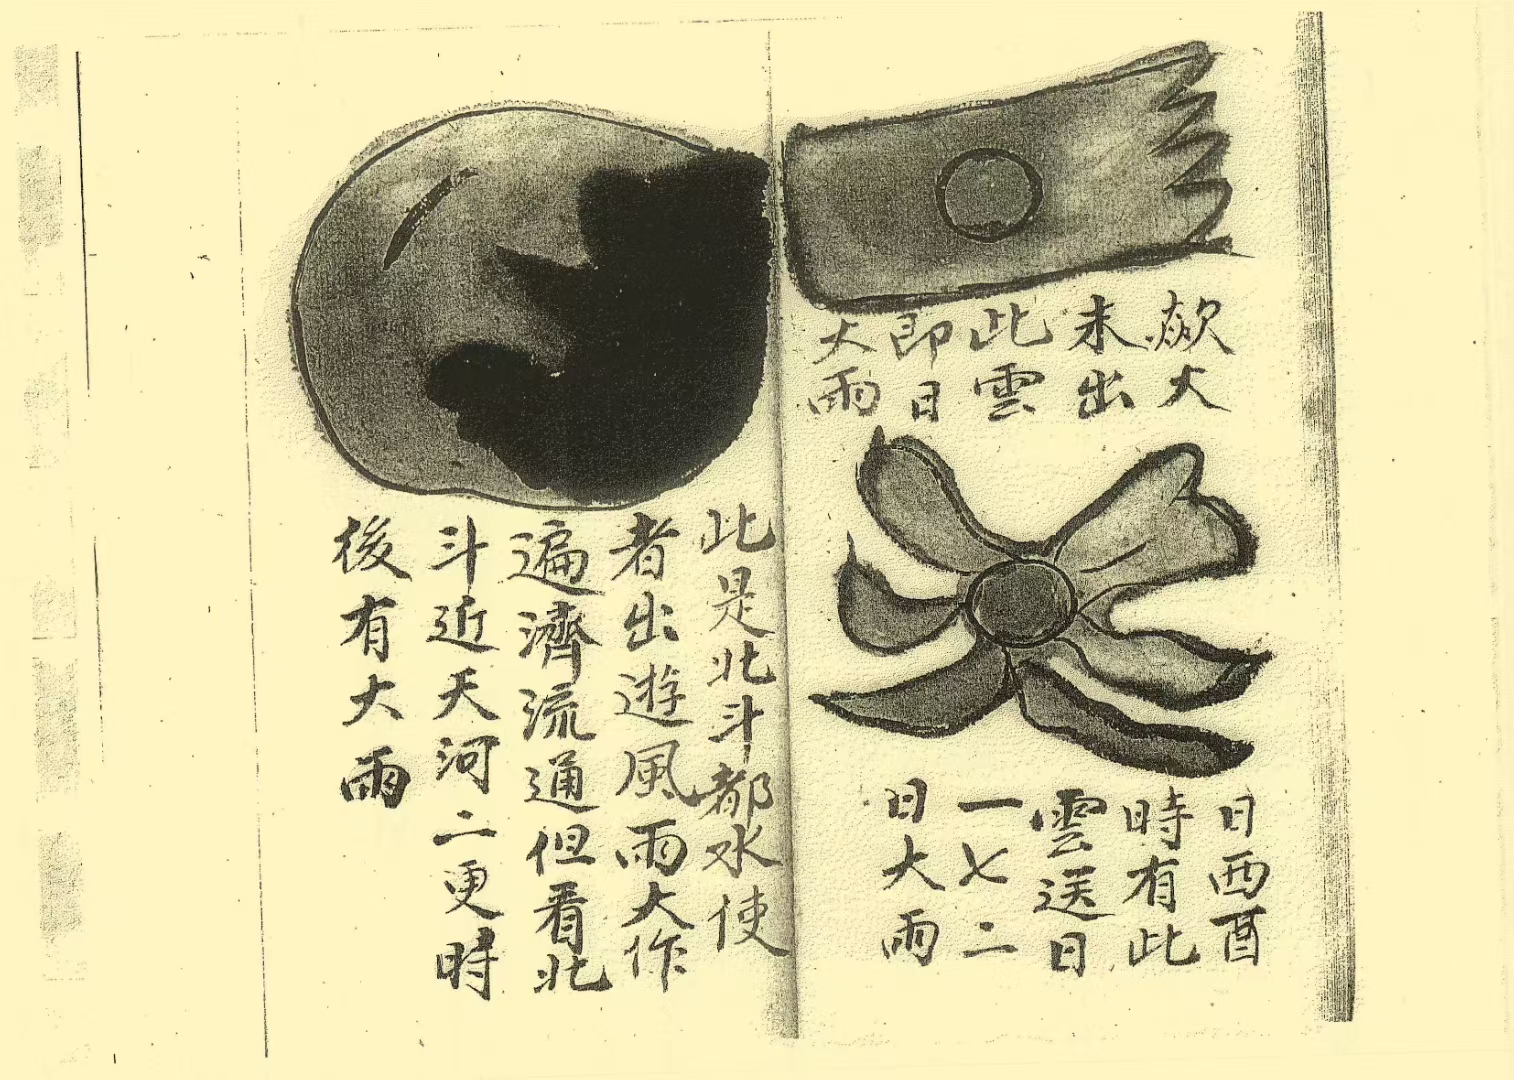 大
未出
此雲
即日
大雨
日西酉
時有此
雲送日
一七二
日大雨
此是北斗都水使
者出遊風雨大作
遍濟流通但看北
斗近天河二更時
後有大雨